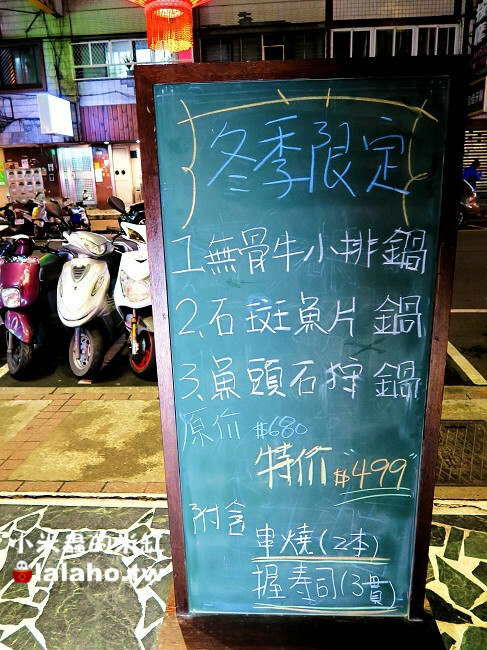 冬季限定
1.無骨牛小排鍋
2.石斑魚片鍋
3.魚頭石狩鍋
原价 $680
特价 $499
附含
串燒(2本)
握壽司(3貫)
小米蟲的米缸
lalaho.tw